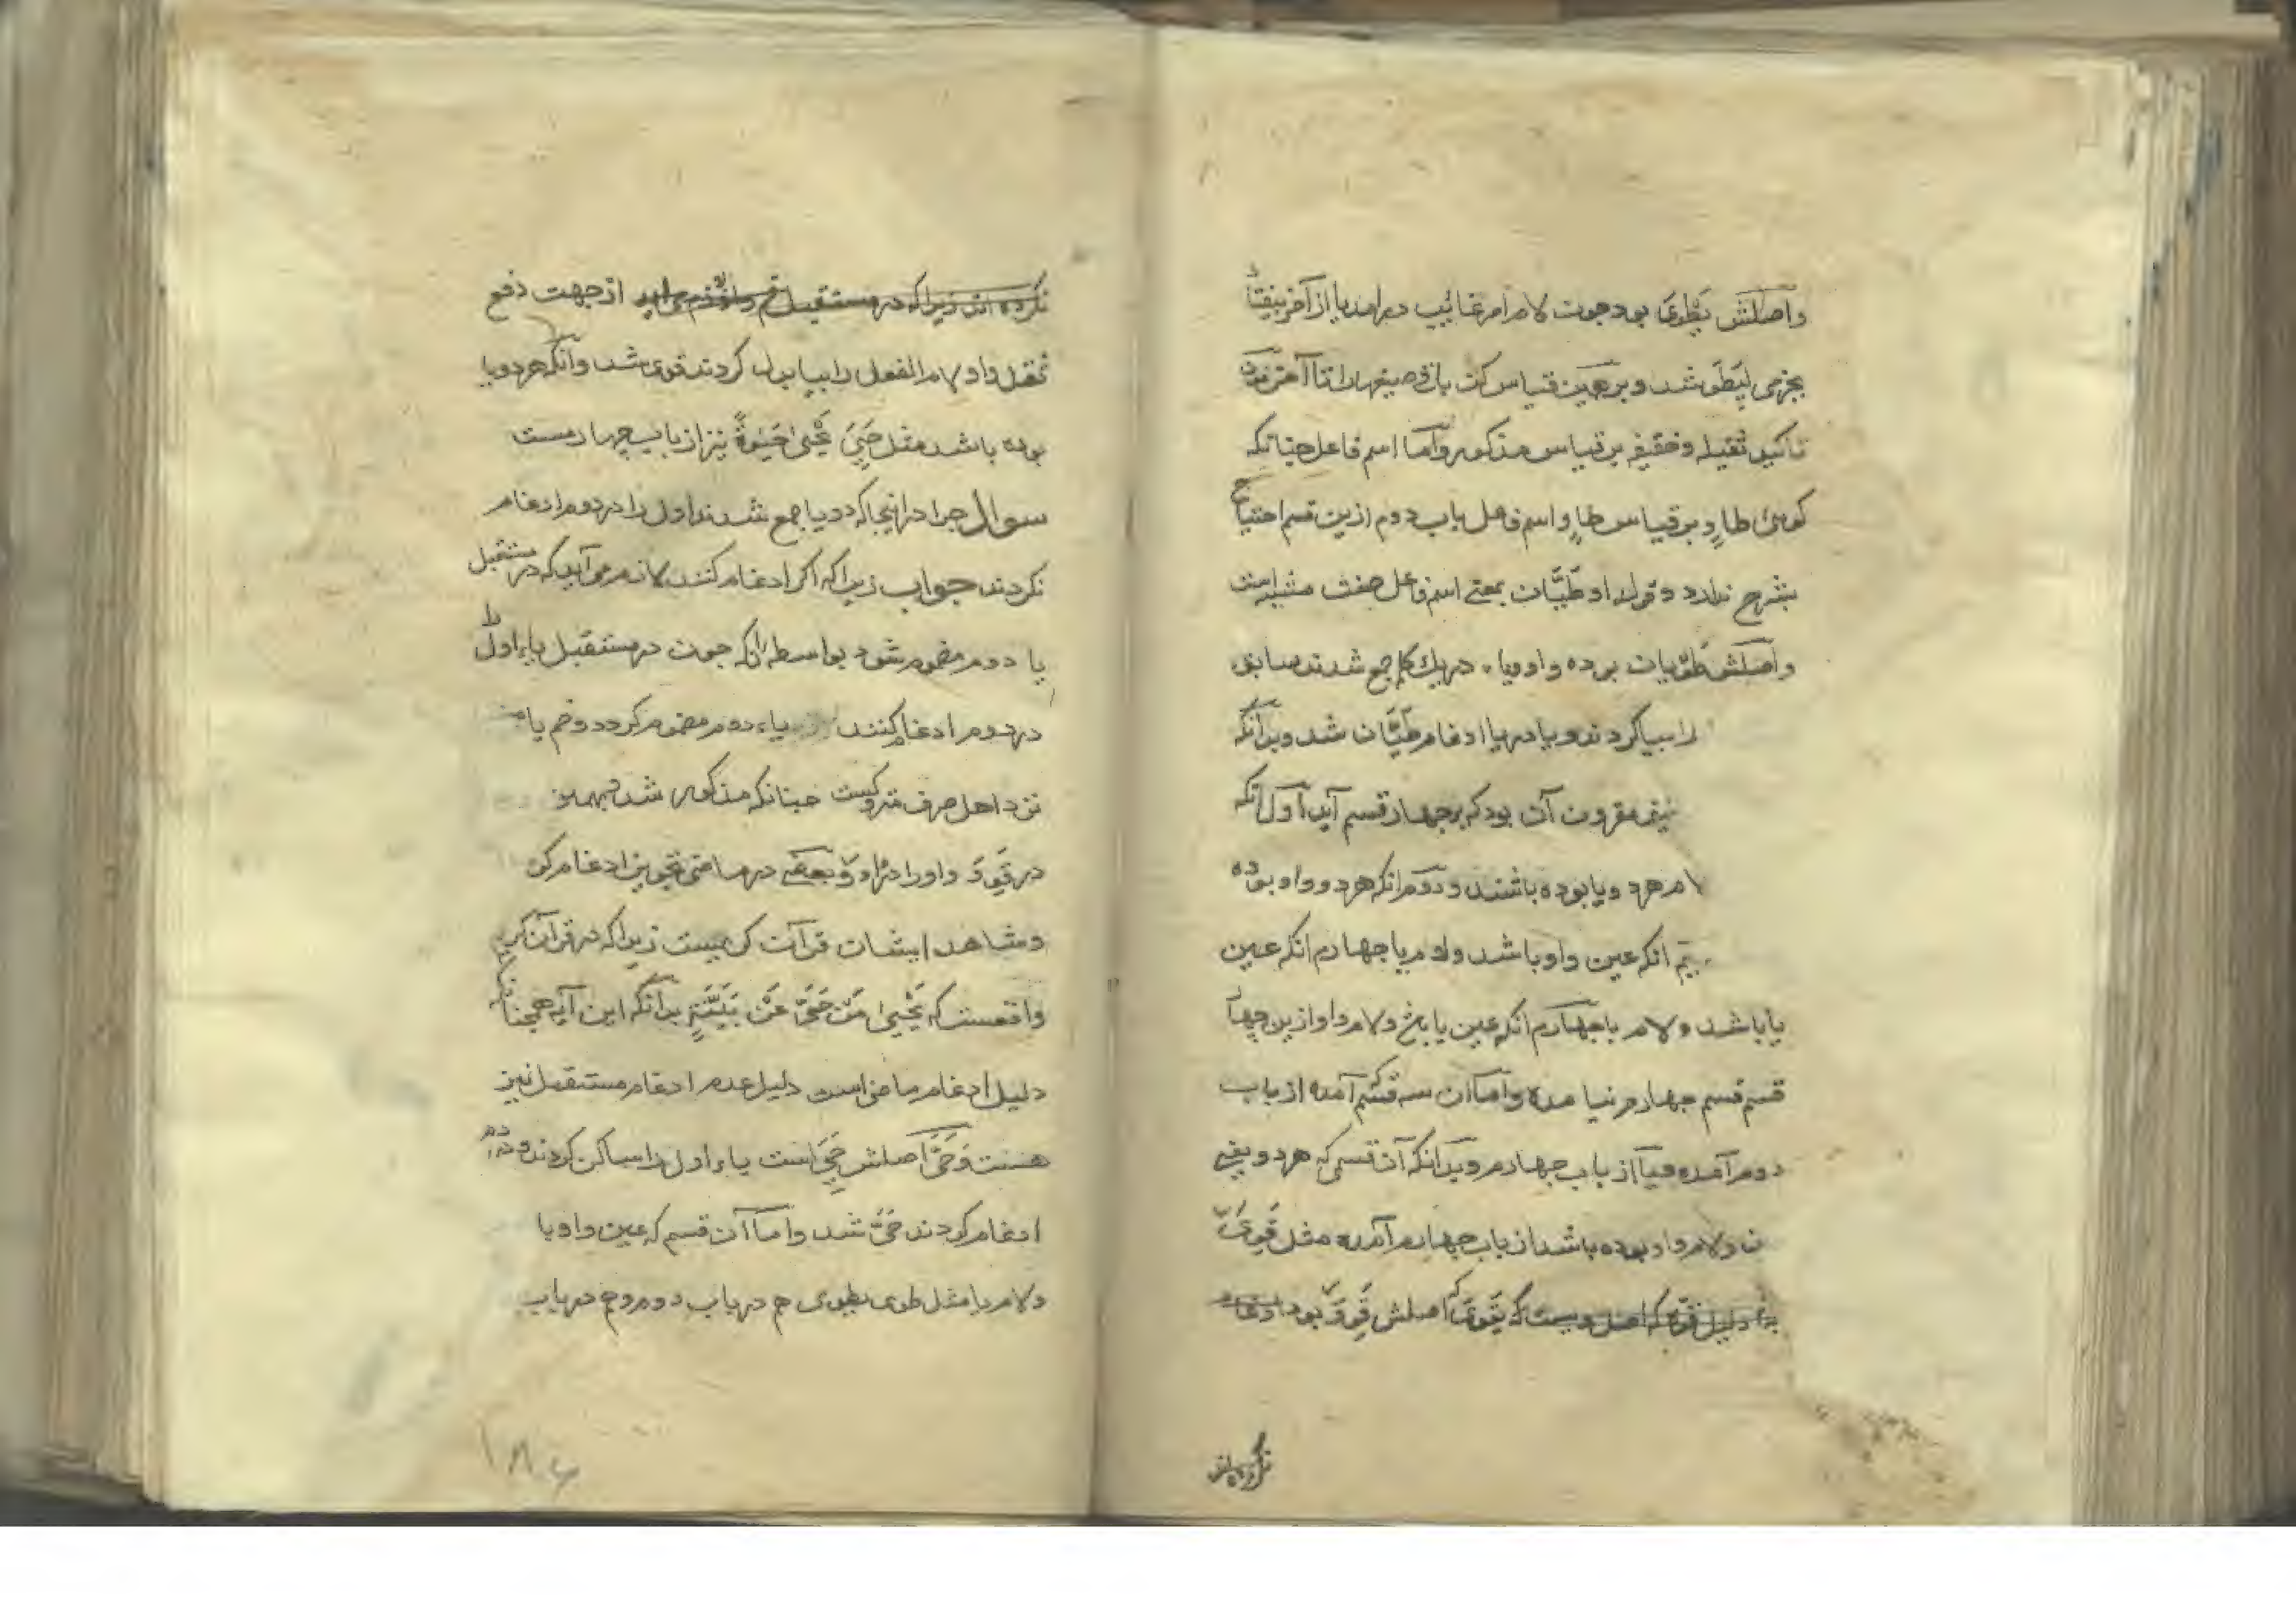 واصلش یَطْوِیُ بود چون لام امر غائیب درامد یا از آخر بیفتاد
بجزمی لِیَطْوِ شد و برهمین قیاس کن باقی صیغهارا تا آخر نون
تاکید ثقیله و خفیفه بر قیاس مذکور و امّا اسم فاعل چنانکه
کوئی طاوٍ بر قیاس طاوٍ و اسم فاعل باب دوم ازین قسم احتیاج
بشرح ندارد و قوله او طَیَّان بمعنے اسم فاعل صفت مشبه است
واصلش طَوْیان بوده واو و یاء در یك کلمه جمع شدند سابق
را بیا کردند و یا در یا ادغام طَیَّان شد و بدانکه
مقرون آن بود که بر چهار قسم آید اوّل آنکه
لام هر دو یا بوده باشند و دوّم انکه هر دو واو بوده
انکه عین واو باشد و لام یا چهارم انکه عین
یا باشد و لام یا چهارم انکه عین یا باشد و لام واو ازین چهار
قسم قسم چهارم نیامده و امّا آن سه قسم آمده از باب
دوم آمده و یا از باب چهارم و بدانکه آن قسمی که هر دو یعنی
ن و لام واو بوده باشد از باب چهارم آمده مثل قَوِیَ
دلیل قوّة که اصل ویست که یَقْوَیُ اصلش قَوِوَ بود ادغام
نکرده اند
نکرده اند زیرا که در مستقبل ضم واو لازم می اید از جهت دفع
ثقل واو لام الفعل را بیا بدل کردند قوی شد و آنکه هر دو یا
بوده باشد مثل حَیِیَ یَحْییٰ حَیٰوةً نیز از باب چهارمست
سوال چرا در اینجا که دو یا جمع شدند اول را در دوم ادغام
نکردند جواب زیرا که اکر ادغام کنند لازم می آید که در مستقبل
یا دوم مضموم شود بواسطه انکه چون در مستقبل یاء اول را
در دوم ادغام کنند یاء دوم مضموم کردد و ضم یا
نزد اهل صرف متروکست چنانکه مذکور شد
در قَوِوَ واو را در واو و بعضے در ماضی تجویز ادغام کرده
و شاهد ایشان قرآن کریمست زیرا که در قرآن کریم
واقعست که یَحْییٰ مَنْ حَیَّ عَنْ بَیِّنَةٍ بدانکه این آیه همچنانکه
دلیل ادغام ماضی است دلیل عدم ادغام مستقبل نیز
هست و حَیَّ اصلش حَیِیَ است یاء اول را ساکن کردند و در دوم
ادغام کردند حَیَّ شد و امّا آن قسم که عین واو یا
و لام یا مثل طوی یطوی هم در باب دوم و هم در باب
۱۸۶